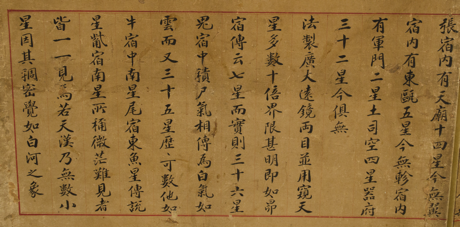 張宿內有天廟十四星今無翼
宿內有東甌五星今無軫宿內
有軍門二星土司空四星器府
三十二星今俱無
法製廣大遠鏡兩目並用窺天
星多數十倍界限甚明即如昴
宿傳云七星而實則三十六星
鬼宿中積尸氣相傳為白氣如
雲而又三十五星歷可數他如
牛宿中南星尾宿東魚星傳說
星觜宿南星所稱微茫難見者
皆一一見焉若天漢乃無數小
星因其稠密覺如白河之象